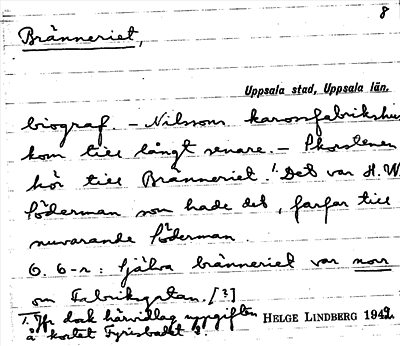 8
Bränneriet,
Uppsala stad, Uppsala län.
biograf. – Nilssons karossfabrikshus
kom till långt senare. – Skorstenen
hör till Bränneriet.¹ Det var H.W.
Söderman som hade det, farfar till
nuvarande Söderman.
G. G-n: Själva bränneriet var norr
om Fabriksgatan. [?]
1. Jfr dock härvidlag uppgiften
å kortet Tyrisbadet 3.
HELGE LINDBERG 1949.